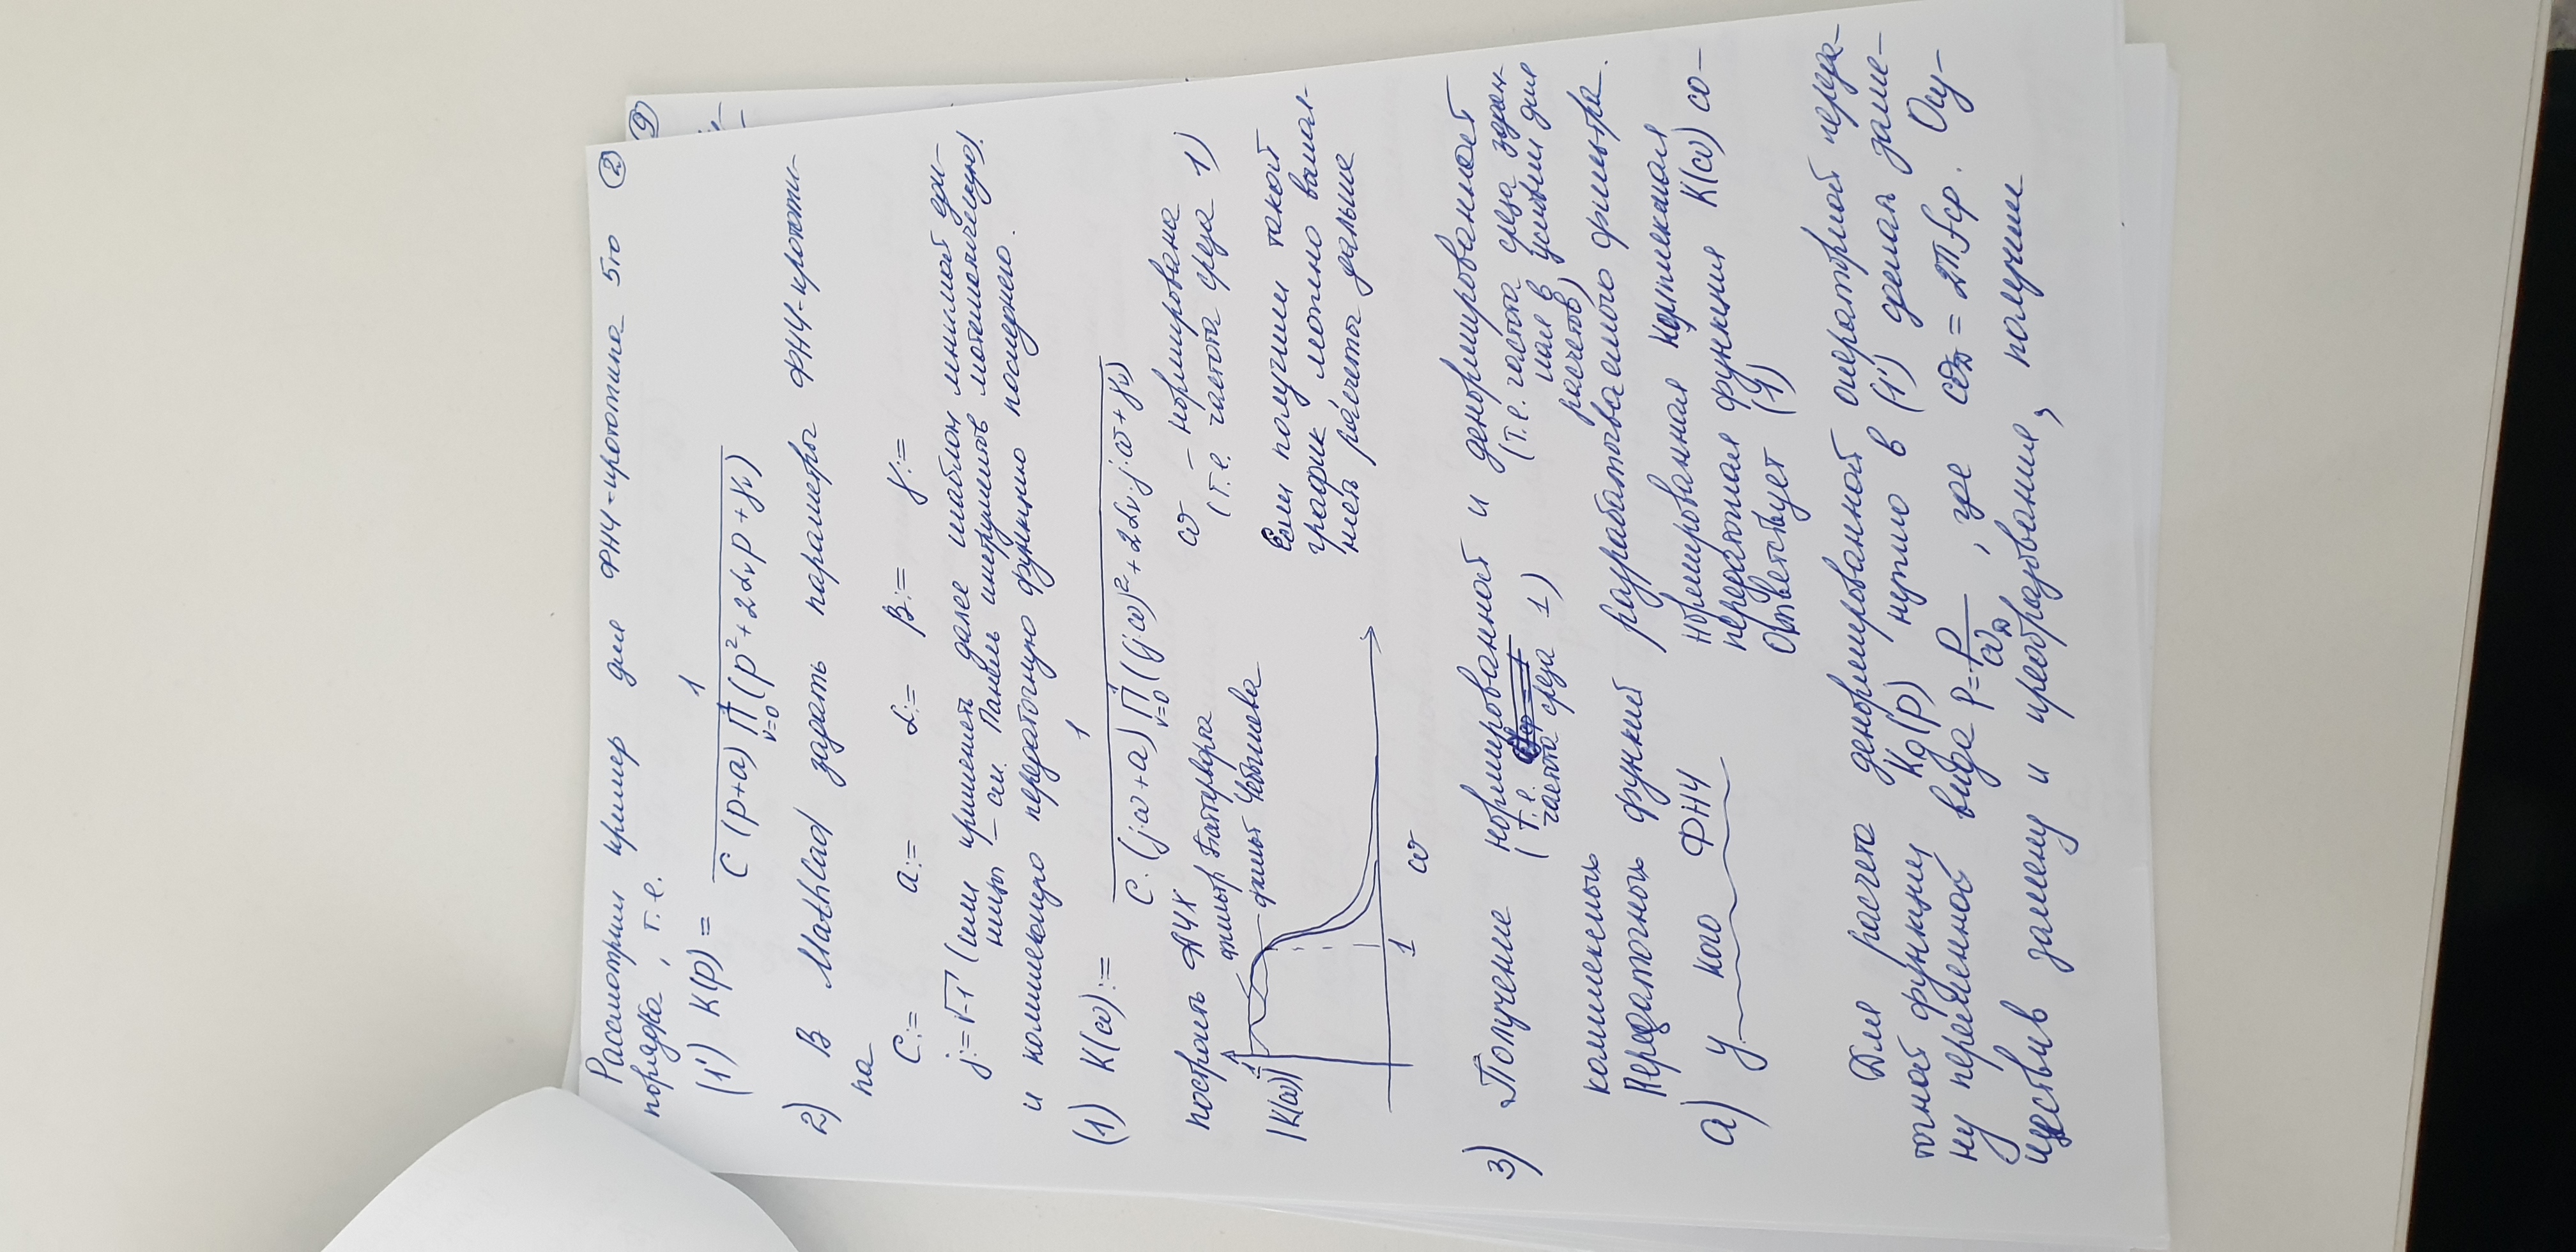 Рассмотрим пример для ФНЧ-прототипа 5го ②
порядка, т.е.
(1') K(p) = 1 / (C (p+a) ∏_{ν=0}^{1} (p² + 2α_ν p + γ_ν))
2) В MathCad задать параметры ФНЧ-прототи-
па
C:= a:= α:= β:= γ:=
j:=√-1 (или применять далее шаблон мнимой еди-
ницы – см. Панель инструментов математическую).
и комплексную передаточную функцию последнего.
(1) K(ω):= 1 / (C·(j·ω+a) ∏_{ν=0}^{1} ((j·ω)² + 2α_ν·j·ω + γ_ν))
построить АЧХ
ω – нормирована
(т.е. частота среза 1)
фильтр Баттерворта
фильт Чебышева
1
|K(ω)|
1
ω
Если получили такой
график, можно выпол-
нять расчеты дальше
3) Получение нормированной и денормированной
(т.е.
частота среза 1)
(т.е. частота среза задан-
ная в условии для
расчетов)
комплексных
Передаточных функций разрабатываемого фильтра.
а) у кого ФНЧ
нормированная комплексная
передаточная функция K(ω) со-
ответствует (1)
Для расчета денормированной операторной переда-
точной функции Kд(p) нужно в (1') сделать заме-
ну переменной вида p = p/ω_д, где ω_д = 2πfср. Осу-
ществив замену и преобразования, получим
9